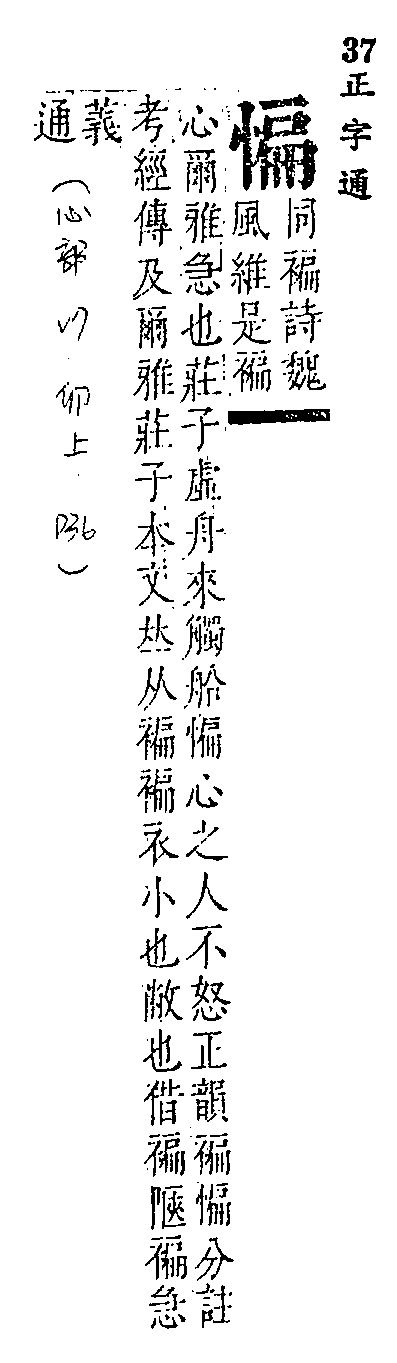 37正字通
惼同褊詩魏
風維是褊
心爾雅急也莊子虛舟來觸船惼心之人不怒正韻褊惼分註
考經傳及爾雅莊子本文丛从褊褊衣小也敝也借褊陿褊急
義
通
(心部 卯上 P36)